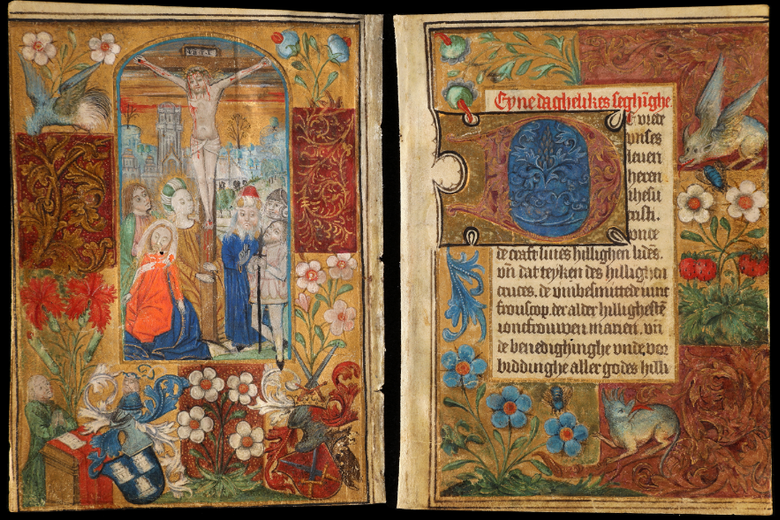 INRI
Eyne daghelikes seghīghe
DE vrede
vnses
leuen
heren
ihesu
cristi.
vnde
de craft sines hillighen lidēs.
vn̄ dat teyken des hillighen
cruces. de vmbesmittede iunc
frouscop. der alder hillighestē
ioncfrouwen marien. vn̄
de benedighinghe vnde vor
biddinghe aller godes hilli